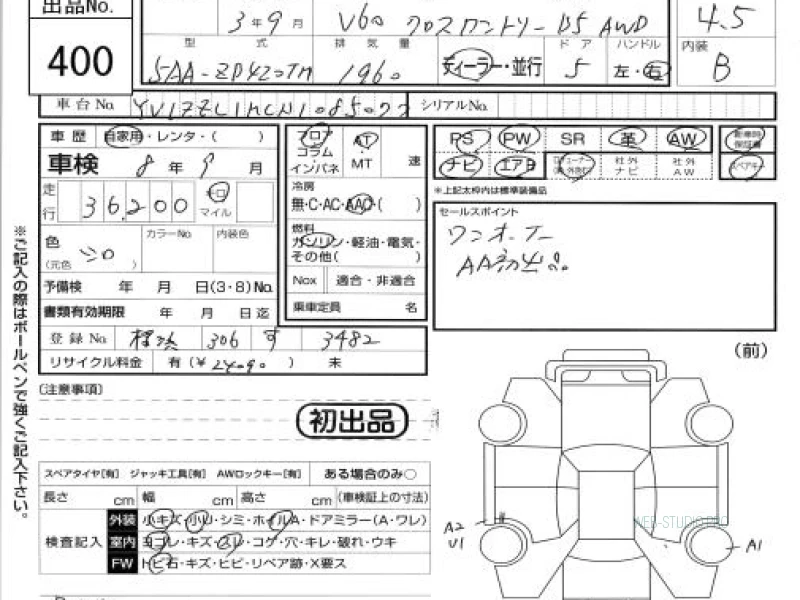 出品No.
400
3 年 9 月
V60 クロスカントリー D5 AWD
4.5
型 式
排 気 量
ド ア
ハンドル
内装
5AA-ZD4204TM
1960
ディーラー・並行
5
左・右
B
車台No.
シリアルNo.
車歴
自家用・レンタ・( )
車検
8 年 9 月
走行
36,200
キロ
マイル
色
(元色
シロ
カラーNo.
内装色
予備検 年 月 日(3・8)No.
書類有効期限 年 月 日迄
登録No.
横浜 306 す 3482
リサイクル料金 有(¥ ) 未
フロア
コラム
インパネ
AT
MT
速
冷房
無・C・AC・AAC・( )
燃料
ガソリン・軽油・電気・
その他( )
Nox 適合・非適合
乗車定員 名
PS
PW
SR
革
AW
新車時保証書
ナビ
エアB
社外ナビ
社外AW
スペアキー
*上記太枠内は標準装備品
セールスポイント
ワンオーナー
AA初出品。
(前)
〔注意事項〕
初出品
スペアタイヤ[有] ジャッキ工具[有] AWロックキー[有] ある場合のみ○
長さ cm 幅 cm 高さ cm (車検証上の寸法)
検査記入
外装 小キズ・小U・シミ・ホイルA・ドアミラー(A・ワレ)
室内 ヨゴレ・キズ・スレ・コゲ・穴・キレ・破れ・ウキ
FW トビ石・キズ・ヒビ・リペア跡・X要ス
A2
U1
A1
※ご記入の際はボールペンで強くご記入下さい。